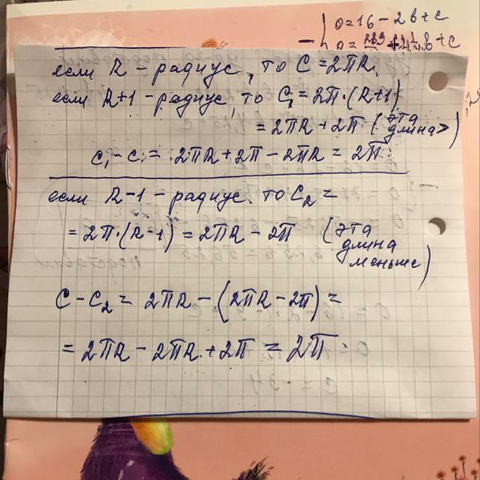 0=16-2b+c
если R – радиус, то C=2πR.
если R+1 – радиус, то C₁=2π·(R+1)
=2πR+2π (эта длина>)
C₁-C=2πR+2π-2πR=2π.
если R-1 – радиус. то C₂=
=2π·(R-1)=2πR-2π (эта
длина
меньше)
C-C₂=2πR-(2πR-2π)=
=2πR-2πR+2π=2π.